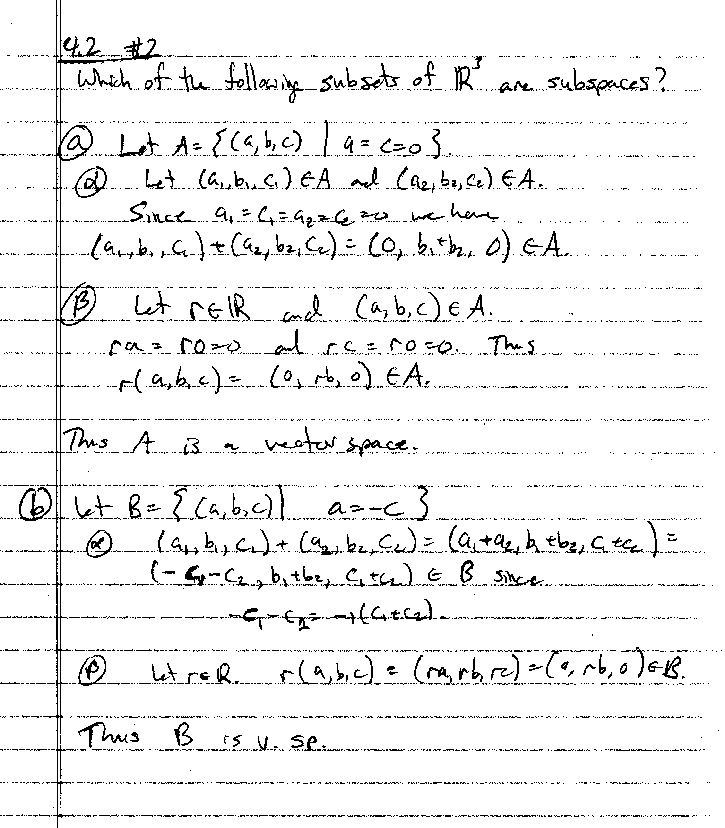 4.2 #2
Which of the following subsets of ℝ³ are subspaces?
ⓐ Let A = {(a,b,c) | a = c = 0}.
ⓐ Let (a₁,b₁,c₁) ∈ A and (a₂,b₂,c₂) ∈ A.
Since a₁ = c₁ = a₂ = c₂ = 0 we have
(a₁,b₁,c₁) + (a₂,b₂,c₂) = (0, b₁+b₂, 0) ∈ A.
Ⓑ Let r ∈ ℝ and (a,b,c) ∈ A.
ra = r0 = 0 and rc = r0 = 0. Thus
r(a,b,c) = (0, rb, 0) ∈ A.
Thus A is a vector space.
ⓑ Let B = {(a,b,c) | a = -c}
ⓐ (a₁,b₁,c₁) + (a₂,b₂,c₂) = (a₁+a₂, b₁+b₂, c₁+c₂) =
(-c₁-c₂, b₁+b₂, c₁+c₂) ∈ B since
-c₁-c₂ = -1(c₁+c₂).
Ⓑ Let r ∈ ℝ. r(a,b,c) = (ra, rb, rc) = (0, rb, 0) ∈ B.
Thus B is v. sp.